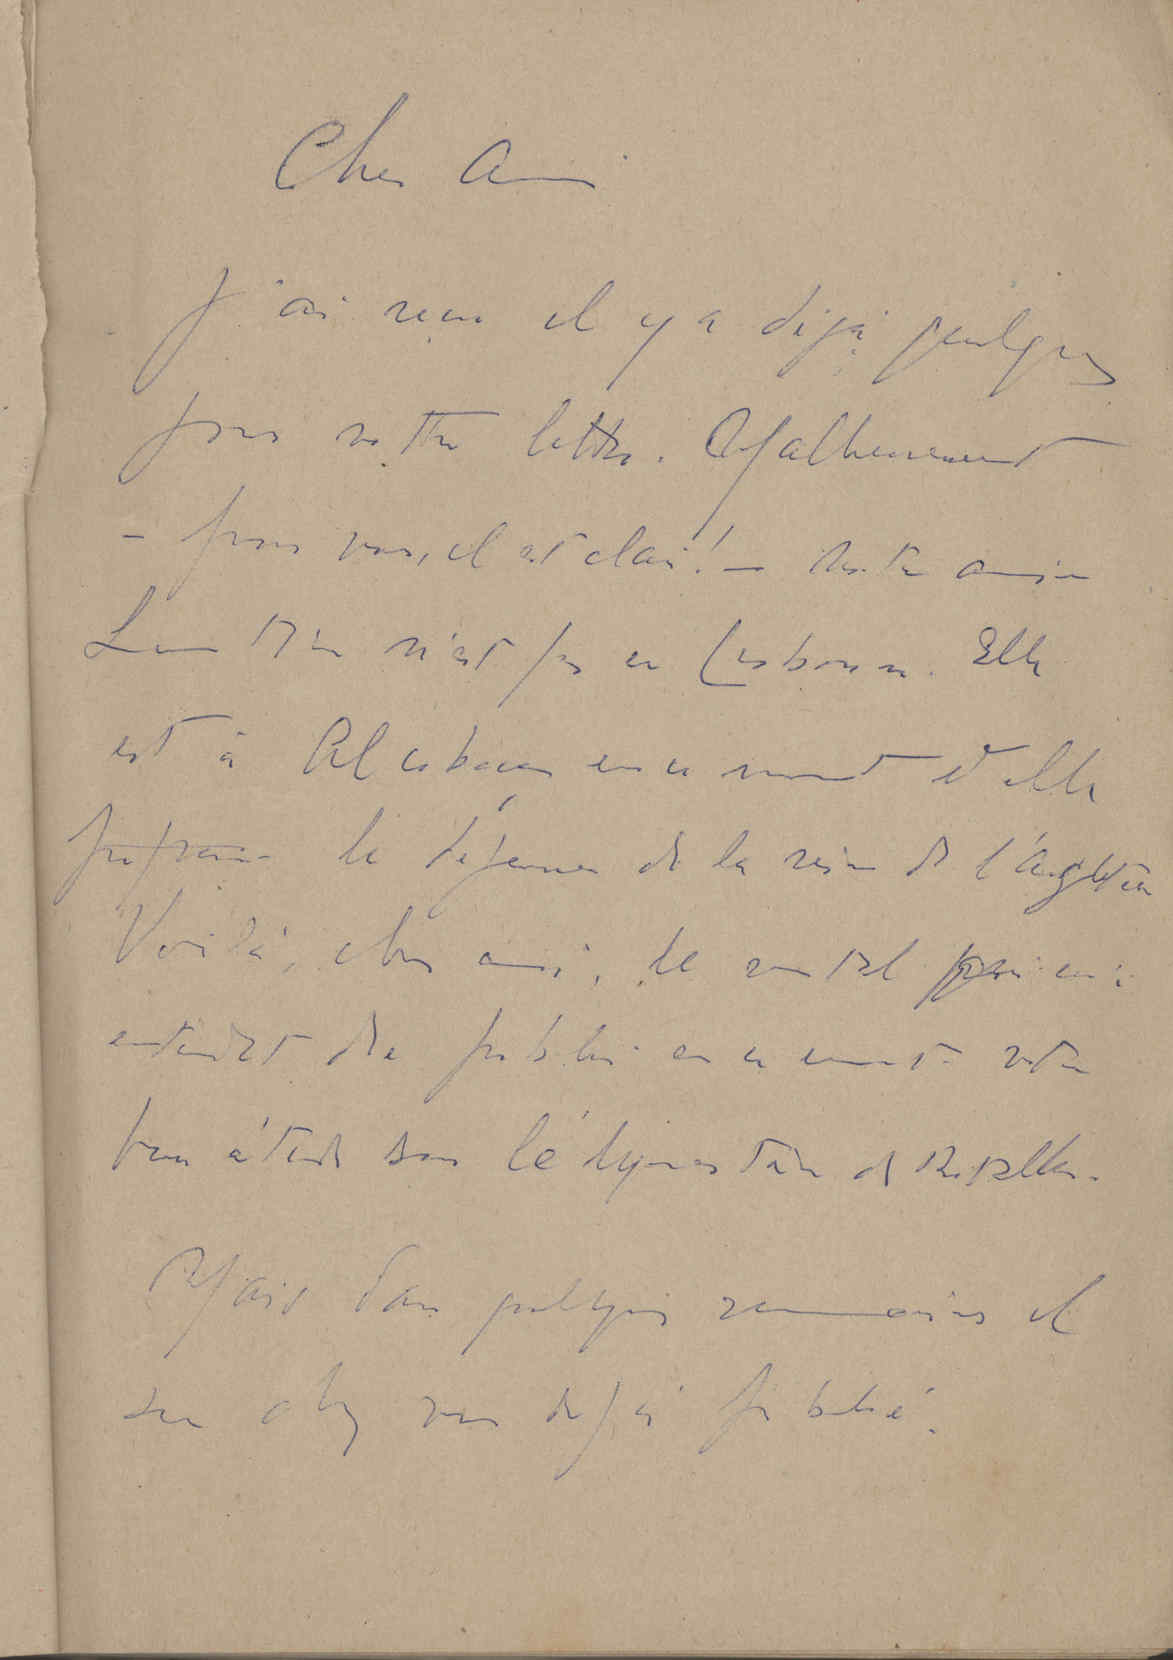 Cher ami
J'ai reçu il y a déjà quelques
jours votre lettre. Malheureusement
– pour vous, il est clair! – votre amie
n'est pas en Lisbonne. Elle
est à Alcobaça en ce moment et elle
prépare le déjeuner de la reine de l'Angleterre
Voilà, cher ami, le
publier en ce moment votre
bon étude sur
Mais dans quelques semaines il
sera chez vous déjà publié.